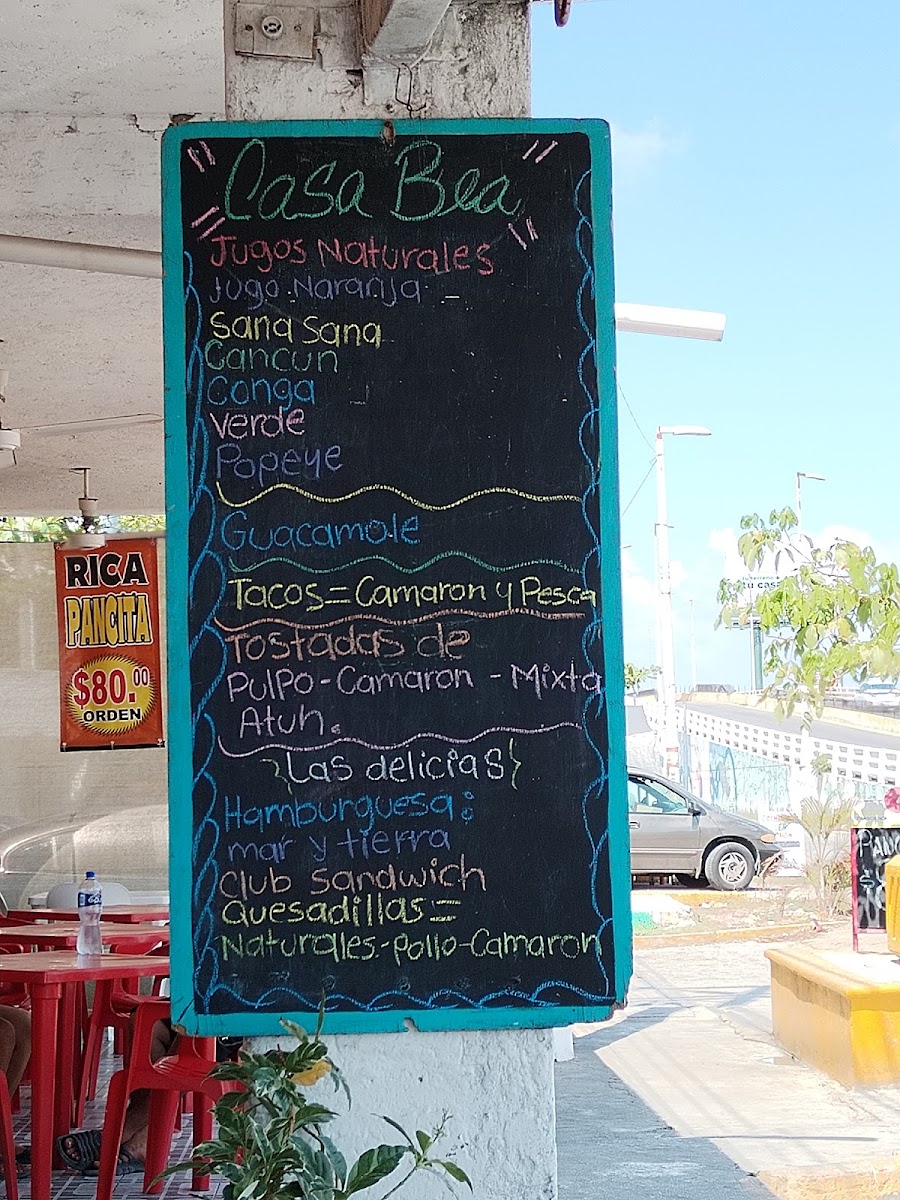 Casa Bea
Jugos Naturales
Jugo Naranja
Sana Sana
Cancun
Conga
Verde
Popeye
Guacamole
Tacos = Camaron y Pesca
Tostadas de
Pulpo - Camaron - Mixta
Atun.
{Las delicias}
Hamburguesa:
mar y tierra
Club Sandwich
Quesadillas =
Naturales - Pollo - Camaron
RICA
PANCITA
$80.00
ORDEN
tu casa